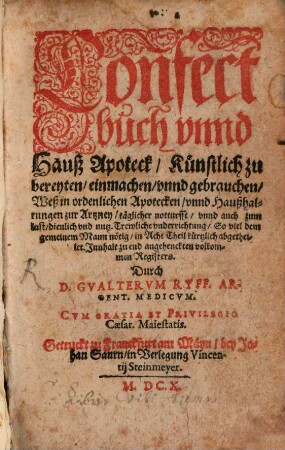 Confect
buͤch vnnd
Hauß Apoteck / Kuͤnstlich zu
bereyten / einmachen / vnnd gebrauchen /
Weß in ordenlichen Apotecken / vnnd Haußhal-
tungen zur Artzney / taͤglicher notturfft / vnnd auch zum
lust / dienlich vnd nutz. Trewliche vnderrichtung / So viel dem
gemeinem Mann noͤtig / in Acht Theil kuͤrtzlich abgethei-
let. Innhalt zu end angehenckten vollom-
men Registers.
Durch
D. GVALTERVM RYFF. AR-
GENT. MEDICVM.
CVM GRATIA ET PRIVILEGIO
Cæsar. Maiestatis.
Getruckt zu Franckfurt am Mayn / bey Jo-
han Saurn / in Verlegung Vincen-
tij Steinmeyer.
M. DC. X.